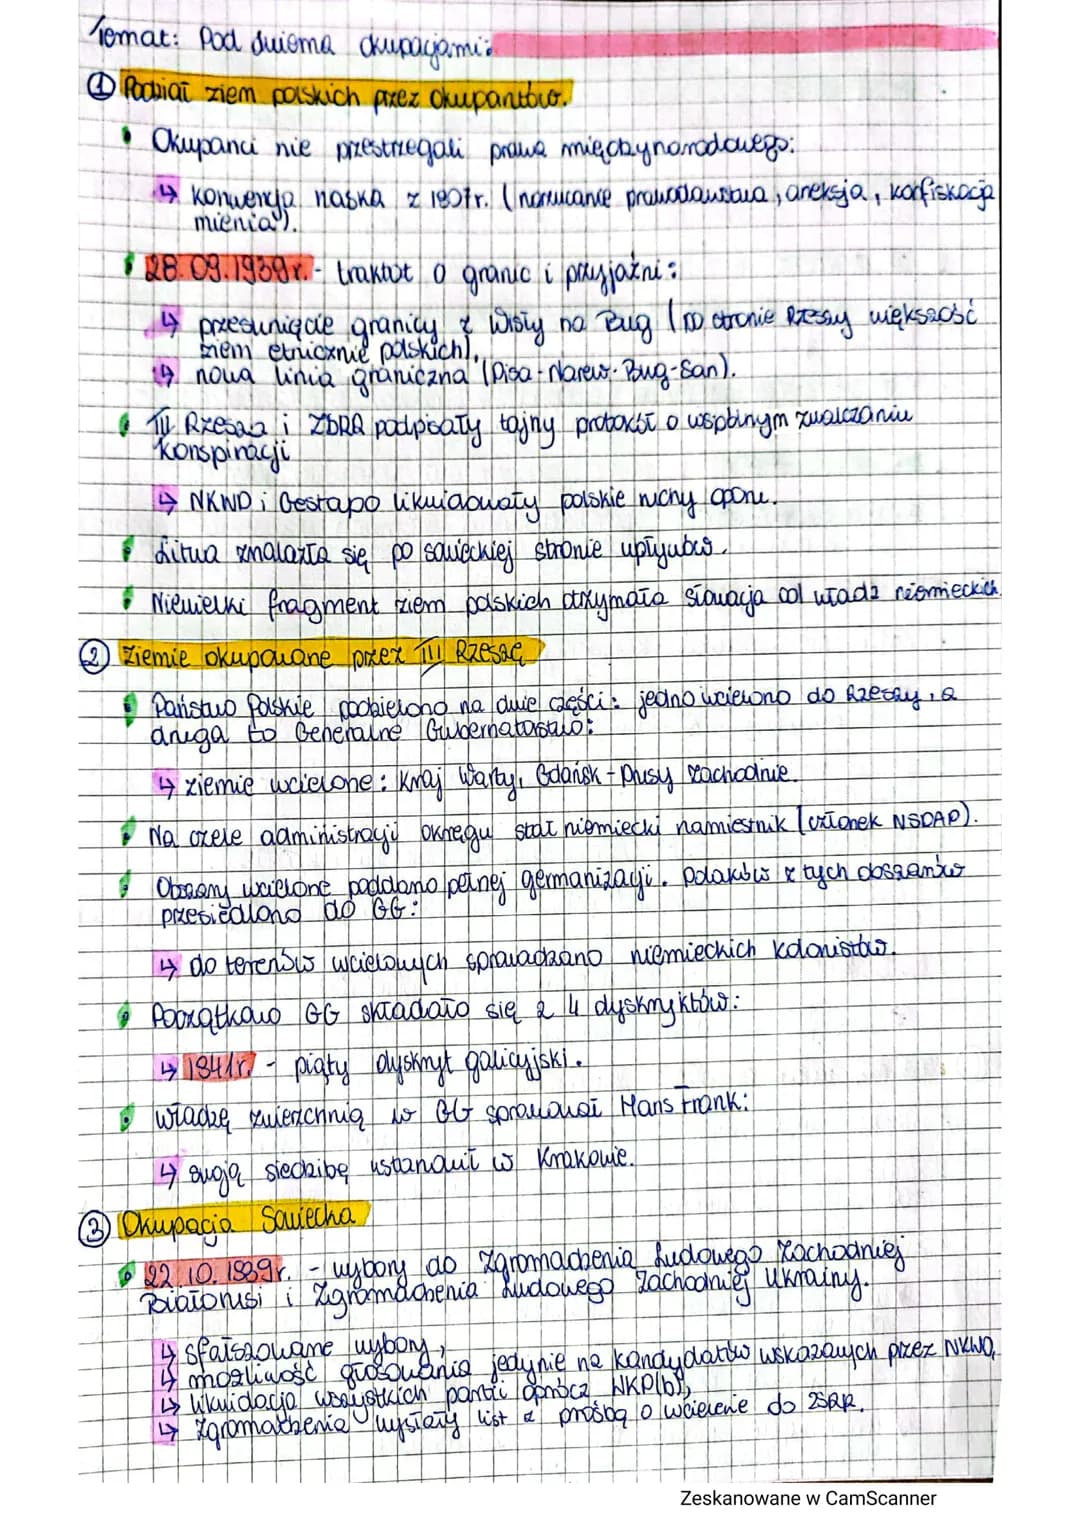 Temat: Pod dwiema okupacjami.
① Podział ziem polskich przez okupantów.
• Okupanci nie przestrzegali prawa międzynarodowego:
↳ konwencja haska z 1907r. (narzucanie prawodawstwa, aneksja, konfiskacja
mienia).
• 28.09.1939r. - traktat o granic i przyjaźni:
↳ przesunięcie granicy z Wisły na Bug (po stronie Rzeszy większość
ziem etnicznie polskich),
↳ nowa linia graniczna (Pisa-Narew-Bug-San).
• III Rzesza i ZSRR podpisały tajny protokół o wspólnym zwalczaniu
konspiracji
↳ NKWD i Gestapo likwidowały polskie ruchy oporu.
• Litwa znalazła się po sowieckiej stronie wpływów.
• Niewielki fragment ziem polskich otrzymała Słowacja od władz niemieckich.
② Ziemie okupowane przez III Rzeszę
• Państwo Polskie podzielono na dwie części: jedno wcielono do Rzeszy, a
druga to Generalne Gubernatorstwo:
↳ ziemie wcielone: Kraj Warty, Gdańsk-Prusy Zachodnie.
• Na czele administracji okręgu stał niemiecki namiestnik (członek NSDAP).
• Obszary wcielone poddano pełnej germanizacji. Polaków z tych obszarów
przesiedlono do GG:
↳ do terenów wcielonych sprowadzano niemieckich kolonistów.
• Początkowo GG składało się z 4 dystryktów:
↳ 1941r. - piąty dystrykt galicyjski.
• Władzę zwierzchnią w GG sprawował Hans Frank:
↳ swoją siedzibę ustanowił w Krakowie.
③ Okupacja Sowiecka
• 22.10.1939r. - wybory do Zgromadzenia Ludowego Zachodniej
Białorusi i Zgromadzenia Ludowego Zachodniej Ukrainy.
↳ sfałszowane wybory,
↳ możliwość głosowania jedynie na kandydatów wskazanych przez NKWD,
↳ likwidacja wszystkich partii oprócz WKP(b),
↳ Zgromadzenia wysłały list z prośbą o wcielenie do ZSRR.
Zeskanowane w CamScanner